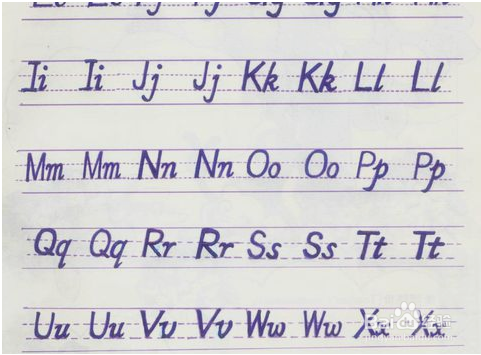 Ii Ii Jj Jj Kk Kk Ll Ll
Mm Mm Nn Nn Oo Oo Pp Pp
Qq Qq Rr Rr Ss Ss Tt Tt
Uu Uu Vv Vv Ww Ww Xx Xx